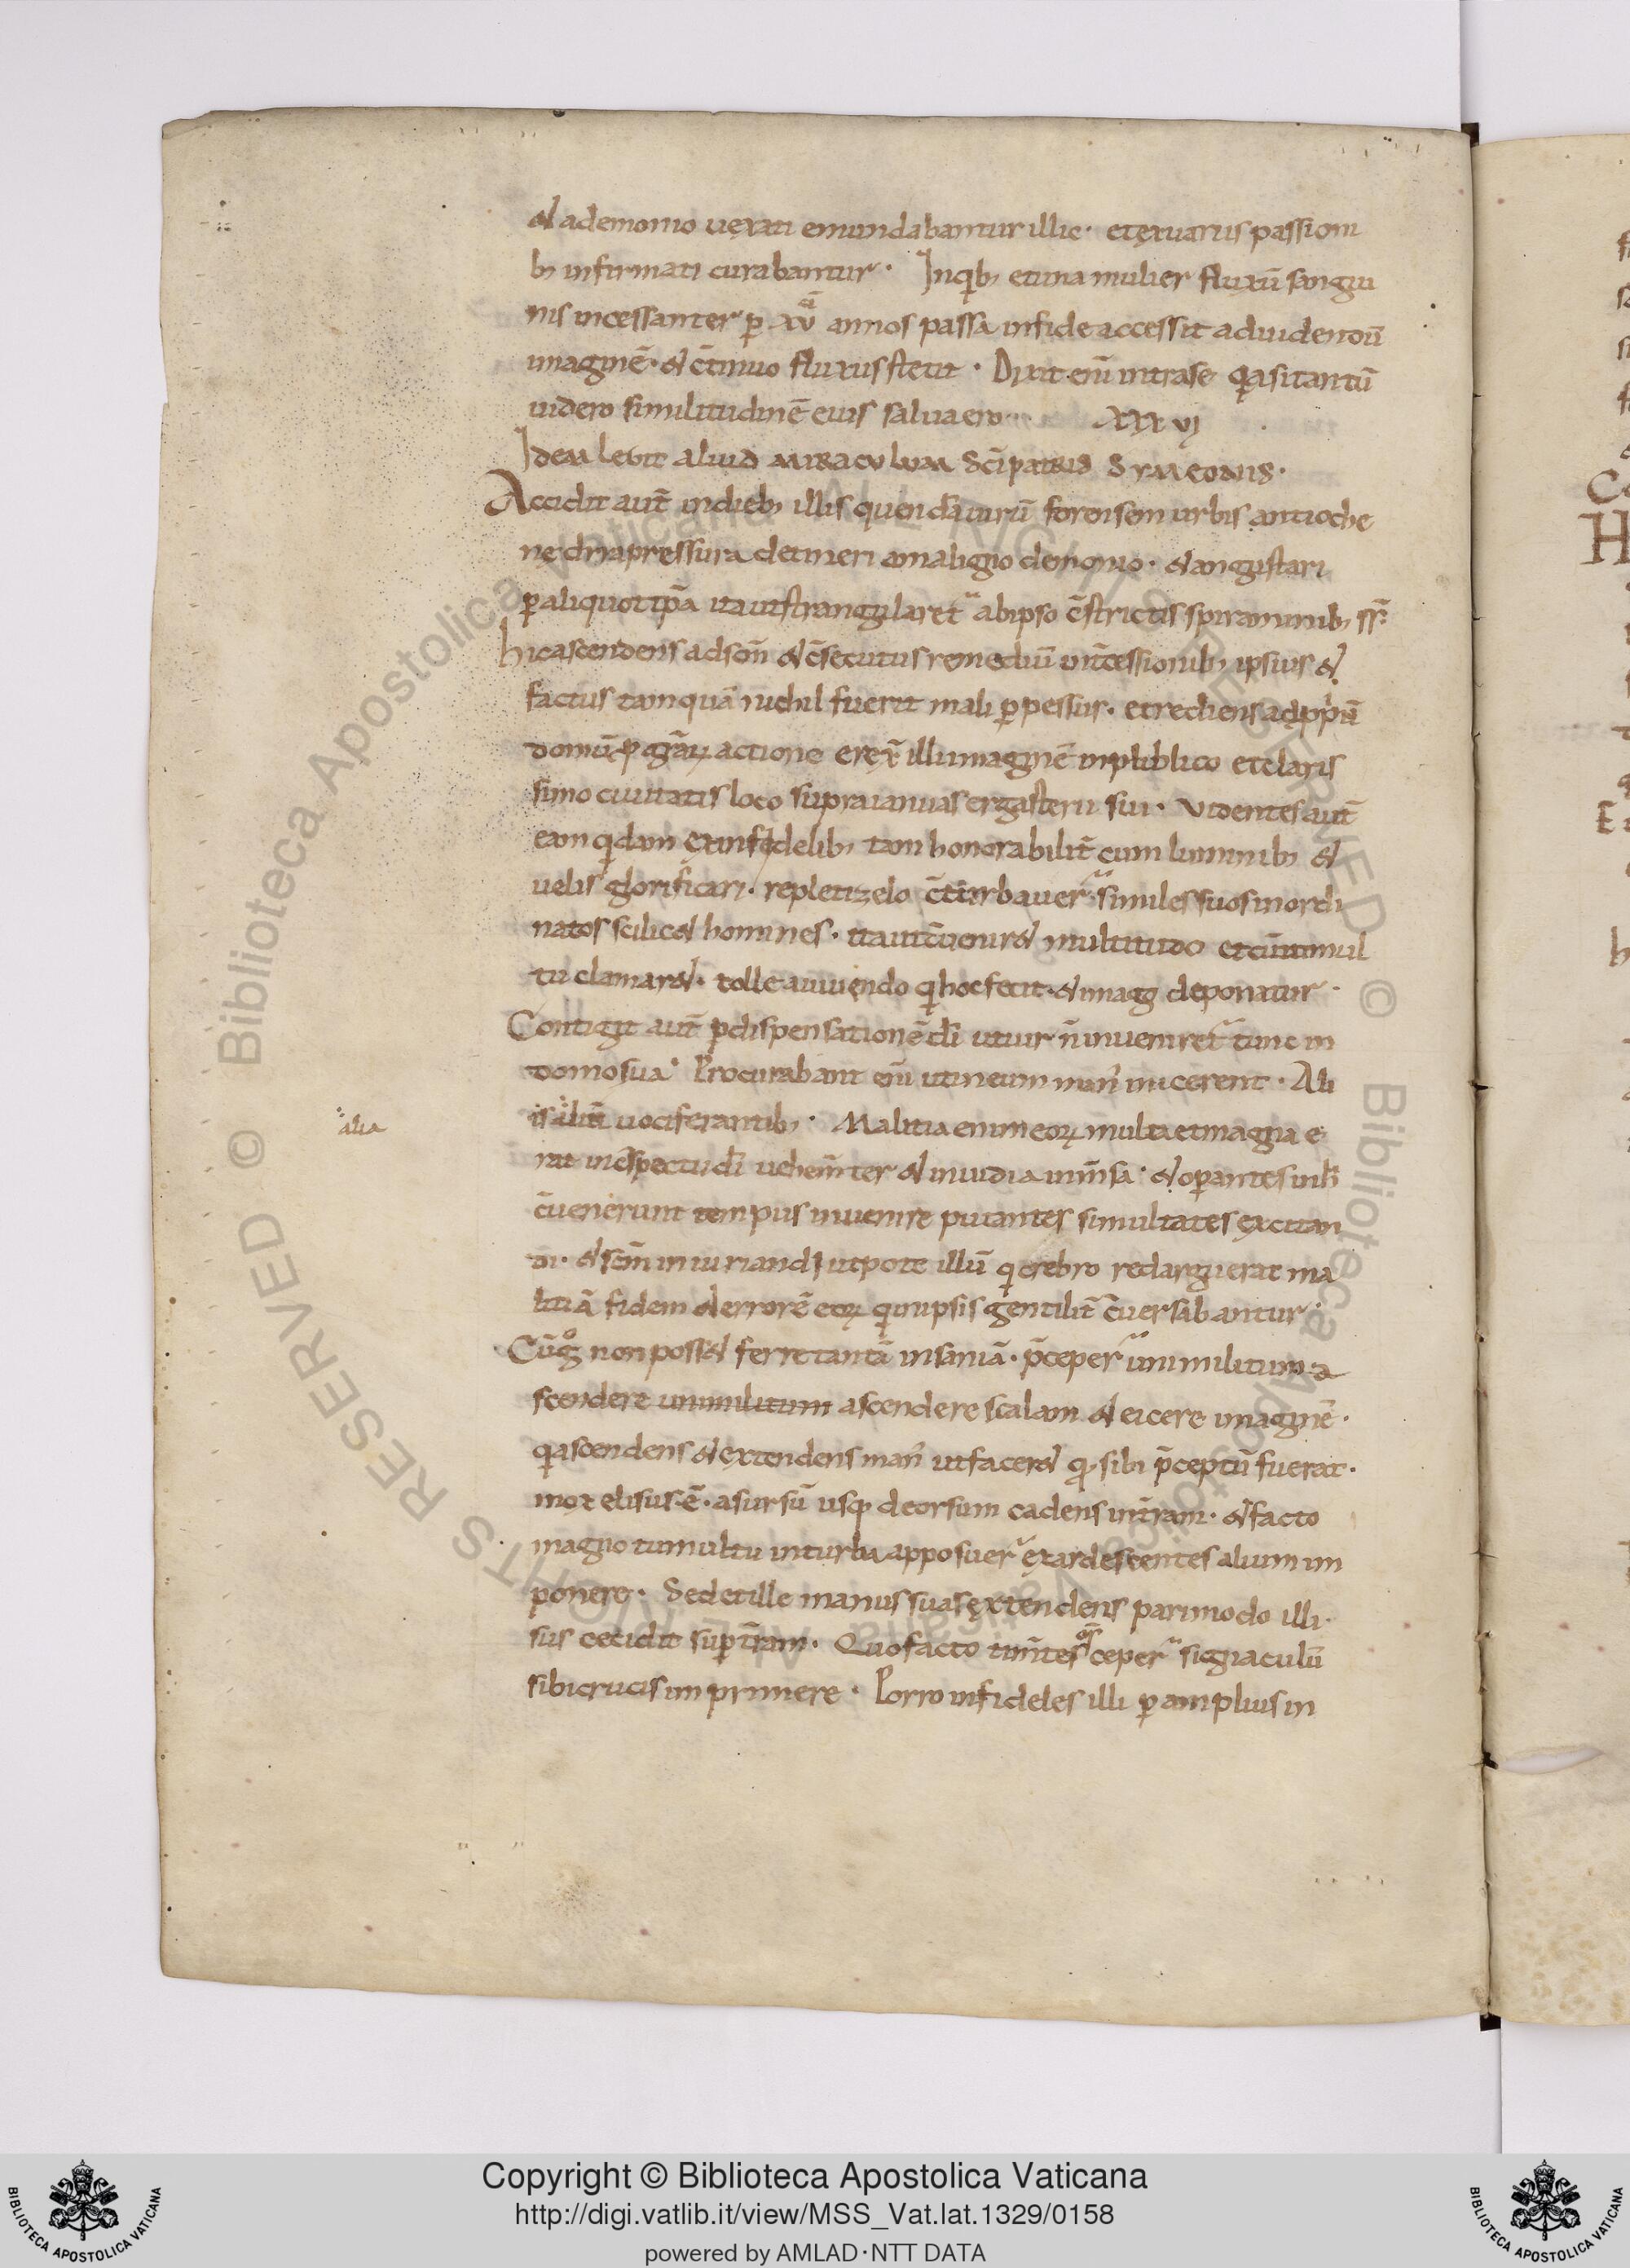 & ademonio uexati emundabantur illic· etexuariis passioni
b; infirmati curabantur· Inqib; etuna mulier fluxū sangui
nis incessanter p xv annos passa infide accessit aduidendū
imaginē· & c̄tinuo fluxus stetit· Dixit enī intrase qia sitantū
uidero similitudinē eius salua ero· XXXVI
Idem legit aliud miraculum sc̄i patris Symeonis·
Accidit aut̄ indieb; illis quendā uirū forensem urbis antioche
ne dira pressura detineri amaligno demonio· & angustari
p aliquot tp̄a ita utstrangularet̃ abipso c̄strictis spiraminib; ss̄·
hic ascendens adsc̄m & c̄secutus remediū int̄cessionib; ipsius &
factus tamquā nichil fuerit mali ppessus· et rediens adppiū
domū p gr̄aꝝ actione erex̄ illi imaginē inpublico et claris
simo ciuitatis loco supra ianuas ergasterii sui· Videntes aut̄
eam qidam exinfidelib; tam honorabilit̄ cum luminib; &
uelis glorificari· repleti zelo c̄turbauer̃ similes suos inordi
natos scilic& homines· ita utc̄uenir& multitudo et cūtumul
tu clamar&· tolle auiuendo qi hoc fecit· & imago deponatur·
Contigit aut̄ p dispensationē dī utuir n̄ inueniret̃ tunc in
domo sua· Procurabant enī utineum man' inicerent· Ali
is alit̄ uociferantib;· Malitia enim eoꝝ multa et magna e
alia
rat inc̄spectu dī uehem̄ter & inuidia inm̄sa· & opantes inh̄
c̄uenerunt tempus inuenire putantes simultates excitan
di· & sc̄m iniuriandi utpote illū qi crebro redarguerat ma
litiā fidem & errorē eoꝝ qi inipsis gentilit̄ c̄uersabantur·
Cūqg non poss& ferre tantā insaniā· p̄ceper̃ uni militum a
scendere unimilitum ascendere scalam & eicere imaginē·
qi ascendens & extendens man' utfacer& qd sibi p̄ceptū fuerat·
mox elisus ē· asursū usq; deorsum cadens int̄ram· & facto
magno tumultu inturba apposuer̃ exardescentes alium im
ponere· Sed et ille manus suas extendens parimodo illi
sus cecidit sup t̄ram· Quo facto tim̄tes oms̄ ceper̃ signaculū
sibi crucis imprimere· Porro infideles illi p amplius in
Copyright © Biblioteca Apostolica Vaticana
http://digi.vatlib.it/view/MSS_Vat.lat.1329/0158
powered by AMLAD·NTT DATA
BIBLIOTECA APOSTOLICA VATICANA
BIBLIOTECA APOSTOLICA VATICANA